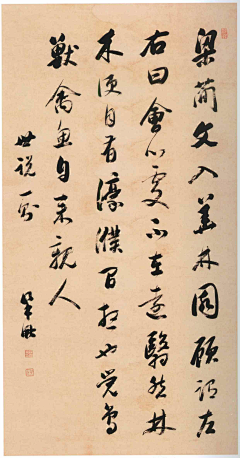 梁簡文入華林園顧謂左
右曰會心處不在遠翳然林
木便自有濠濮間想也覺鳥
獸禽魚自來親人
世說一則